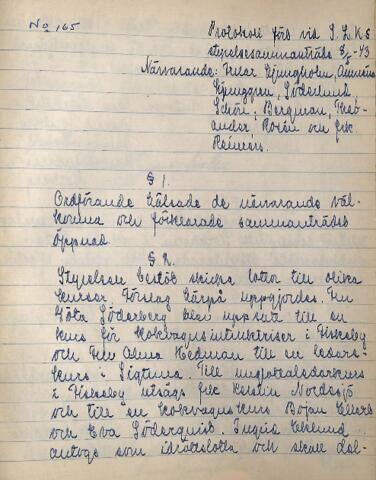 No 165
Protokoll förd vid S.L.K.S
styrelsesammanträde 8/5-43
Närvarande: Fruar Ljungholm,
Ljunggren, Söderlund,
Schön, Bergman, Theo-
ander, Rosén och frk
Reiners.
§ 1.
Ordförande hälsade de närvarande väl-
komna och förklarade sammanträdet
öppnad.
§ 2.
Styrelsen beslöt skicka lottor till olika
kurser. Förslag härpå uppgjordes. Fru
Göta Söderberg blev uppsatt till en
kurs för kokvagnsinstruktriser i Fiskeby
och Fru Alma Hedman till en ledare-
kurs i Sigtuna. Till unglottaledarkurs
i Fiskeby uttogs frk Kerstin Nordsjö
och till en kokvagnskurs Bojan
och Eva Söderquist. Ingrid Eklund
antogs som idrottslotta och skall del-